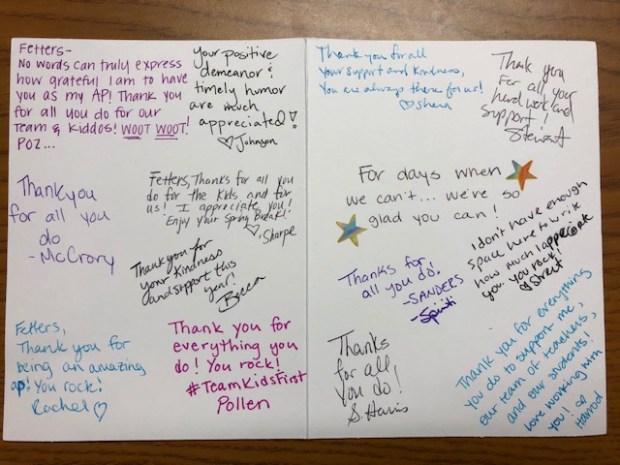 Fetters-
No words can truly express
how grateful I am to have
you as my AP! Thank you
for all you do for our
Team & kiddos! WOOT WOOT!
POZ...
your positive
demeanor &
timely humor
are much
appreciated!
♡Johnson
Thank you for all
your support and kindness,
You are always there for us!
♡Shera
Thank you
For all your
hard work and
support!
Stewart
Thank you
for all you
do
-McCrory
Fetters, Thanks for all you
do for the kids and for
us! I appreciate you!
Enjoy your Spring Break!
♡, Sharpe
For days when
we can't... we're so
glad you can!
Thank you for
your kindness
and support this
year!
Becca
Thanks for
all you do!
-SANDERS
I don't have enough
space here to write
how much I appreciate
you. You rock!
♡Street
Fetters,
Thank you for
being an amazing
ap! You rock!
Rachel ♡
Thank you for
everything you
do! You rock!
#TeamKidsFirst
Pollen
Thanks
for all
you do!
S. Harris
Thank you for everything
you do to support me,
our team of teachers,
and our students!
Love working with
you!
Harrod